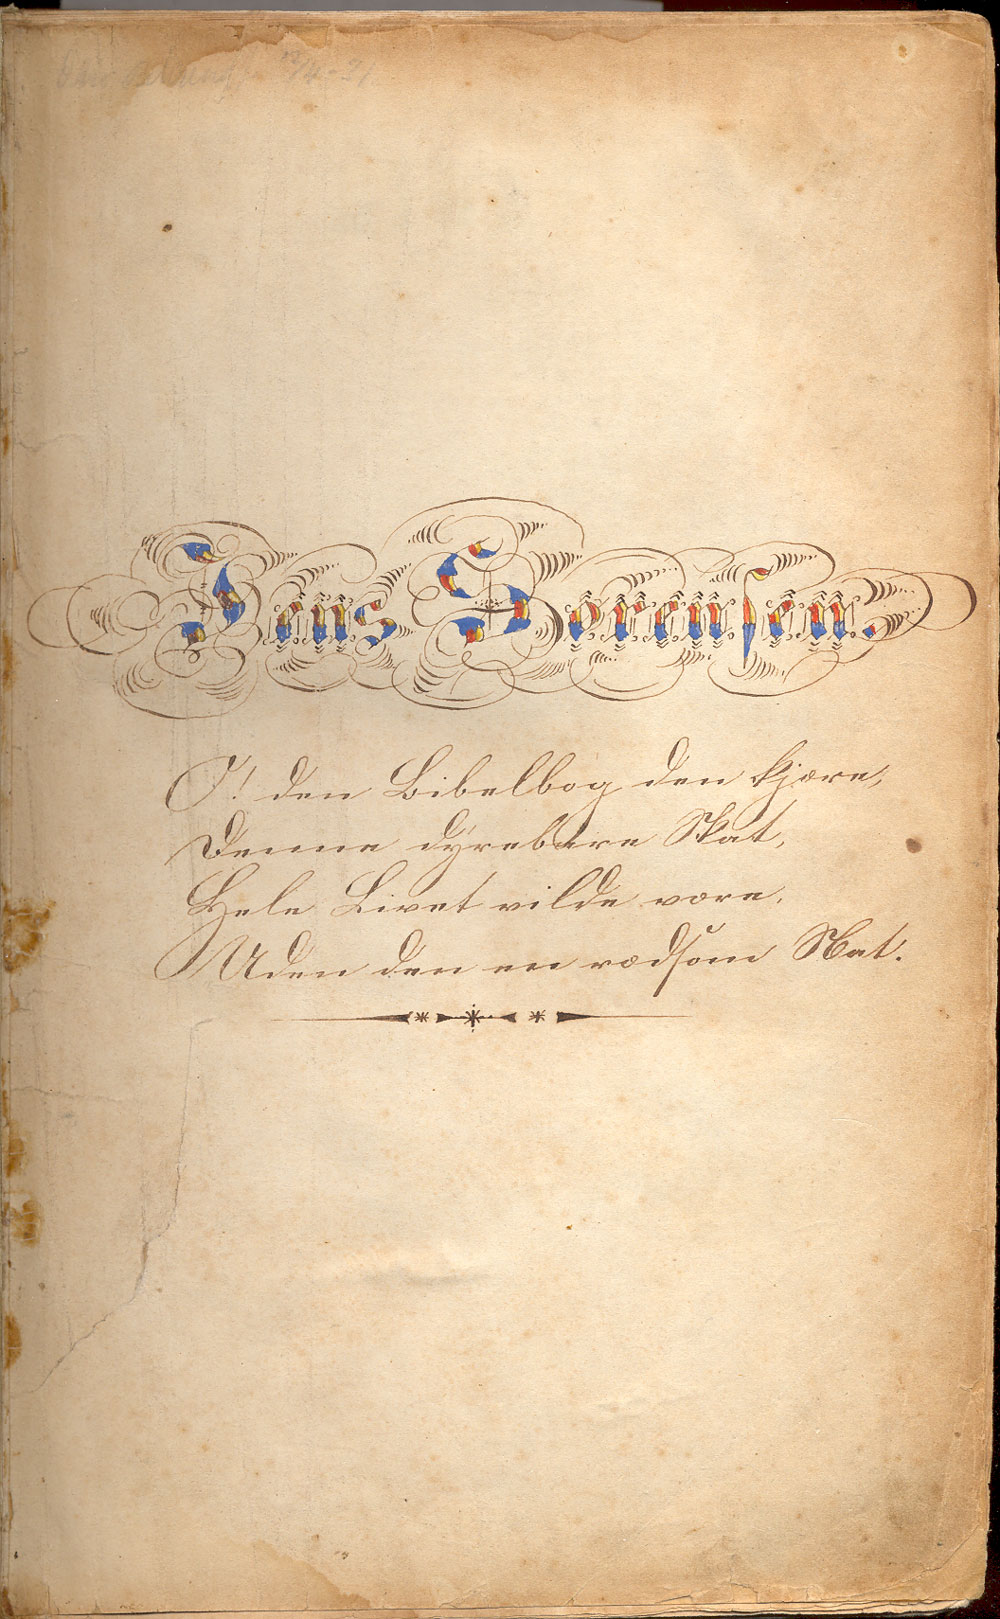 Jens Sørensen.
O! den Bibelbog den kjære,
Denne dyrebare Skat,
Hele Livet vilde være,
Uden den en rædsom Nat.